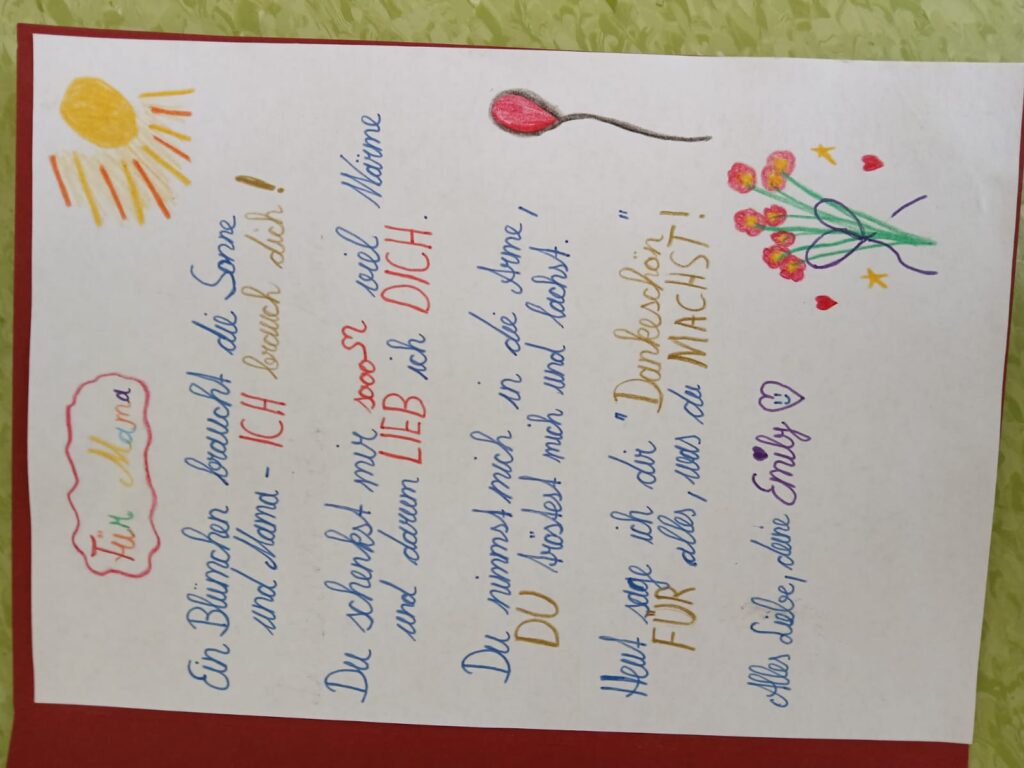 Für Mama
Ein Blümchen braucht die Sonne
und Mama - ICH brauch dich!
Du schenkst mir sooo viel Wärme
und darum LIEB ich DICH.
Du nimmst mich in die Arme,
DU tröstest mich und lachst.
Heut sage ich dir "Dankeschön"
FÜR alles, was du MACHST!
Alles Liebe, deine Emily